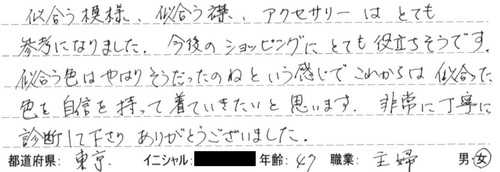 似合う模様、似合う襟、アクセサリーはとても
参考になりました。今後のショッピングにとても役立ちそうです。
似合う色はやはりそうだったのねという感じでこれからは似合った
色を自信を持って着ていきたいと思います。非常に丁寧に
診断して下さりありがとうございました。
都道府県: 東京 イニシャル: 年齢: 47 職業: 主婦 男・女